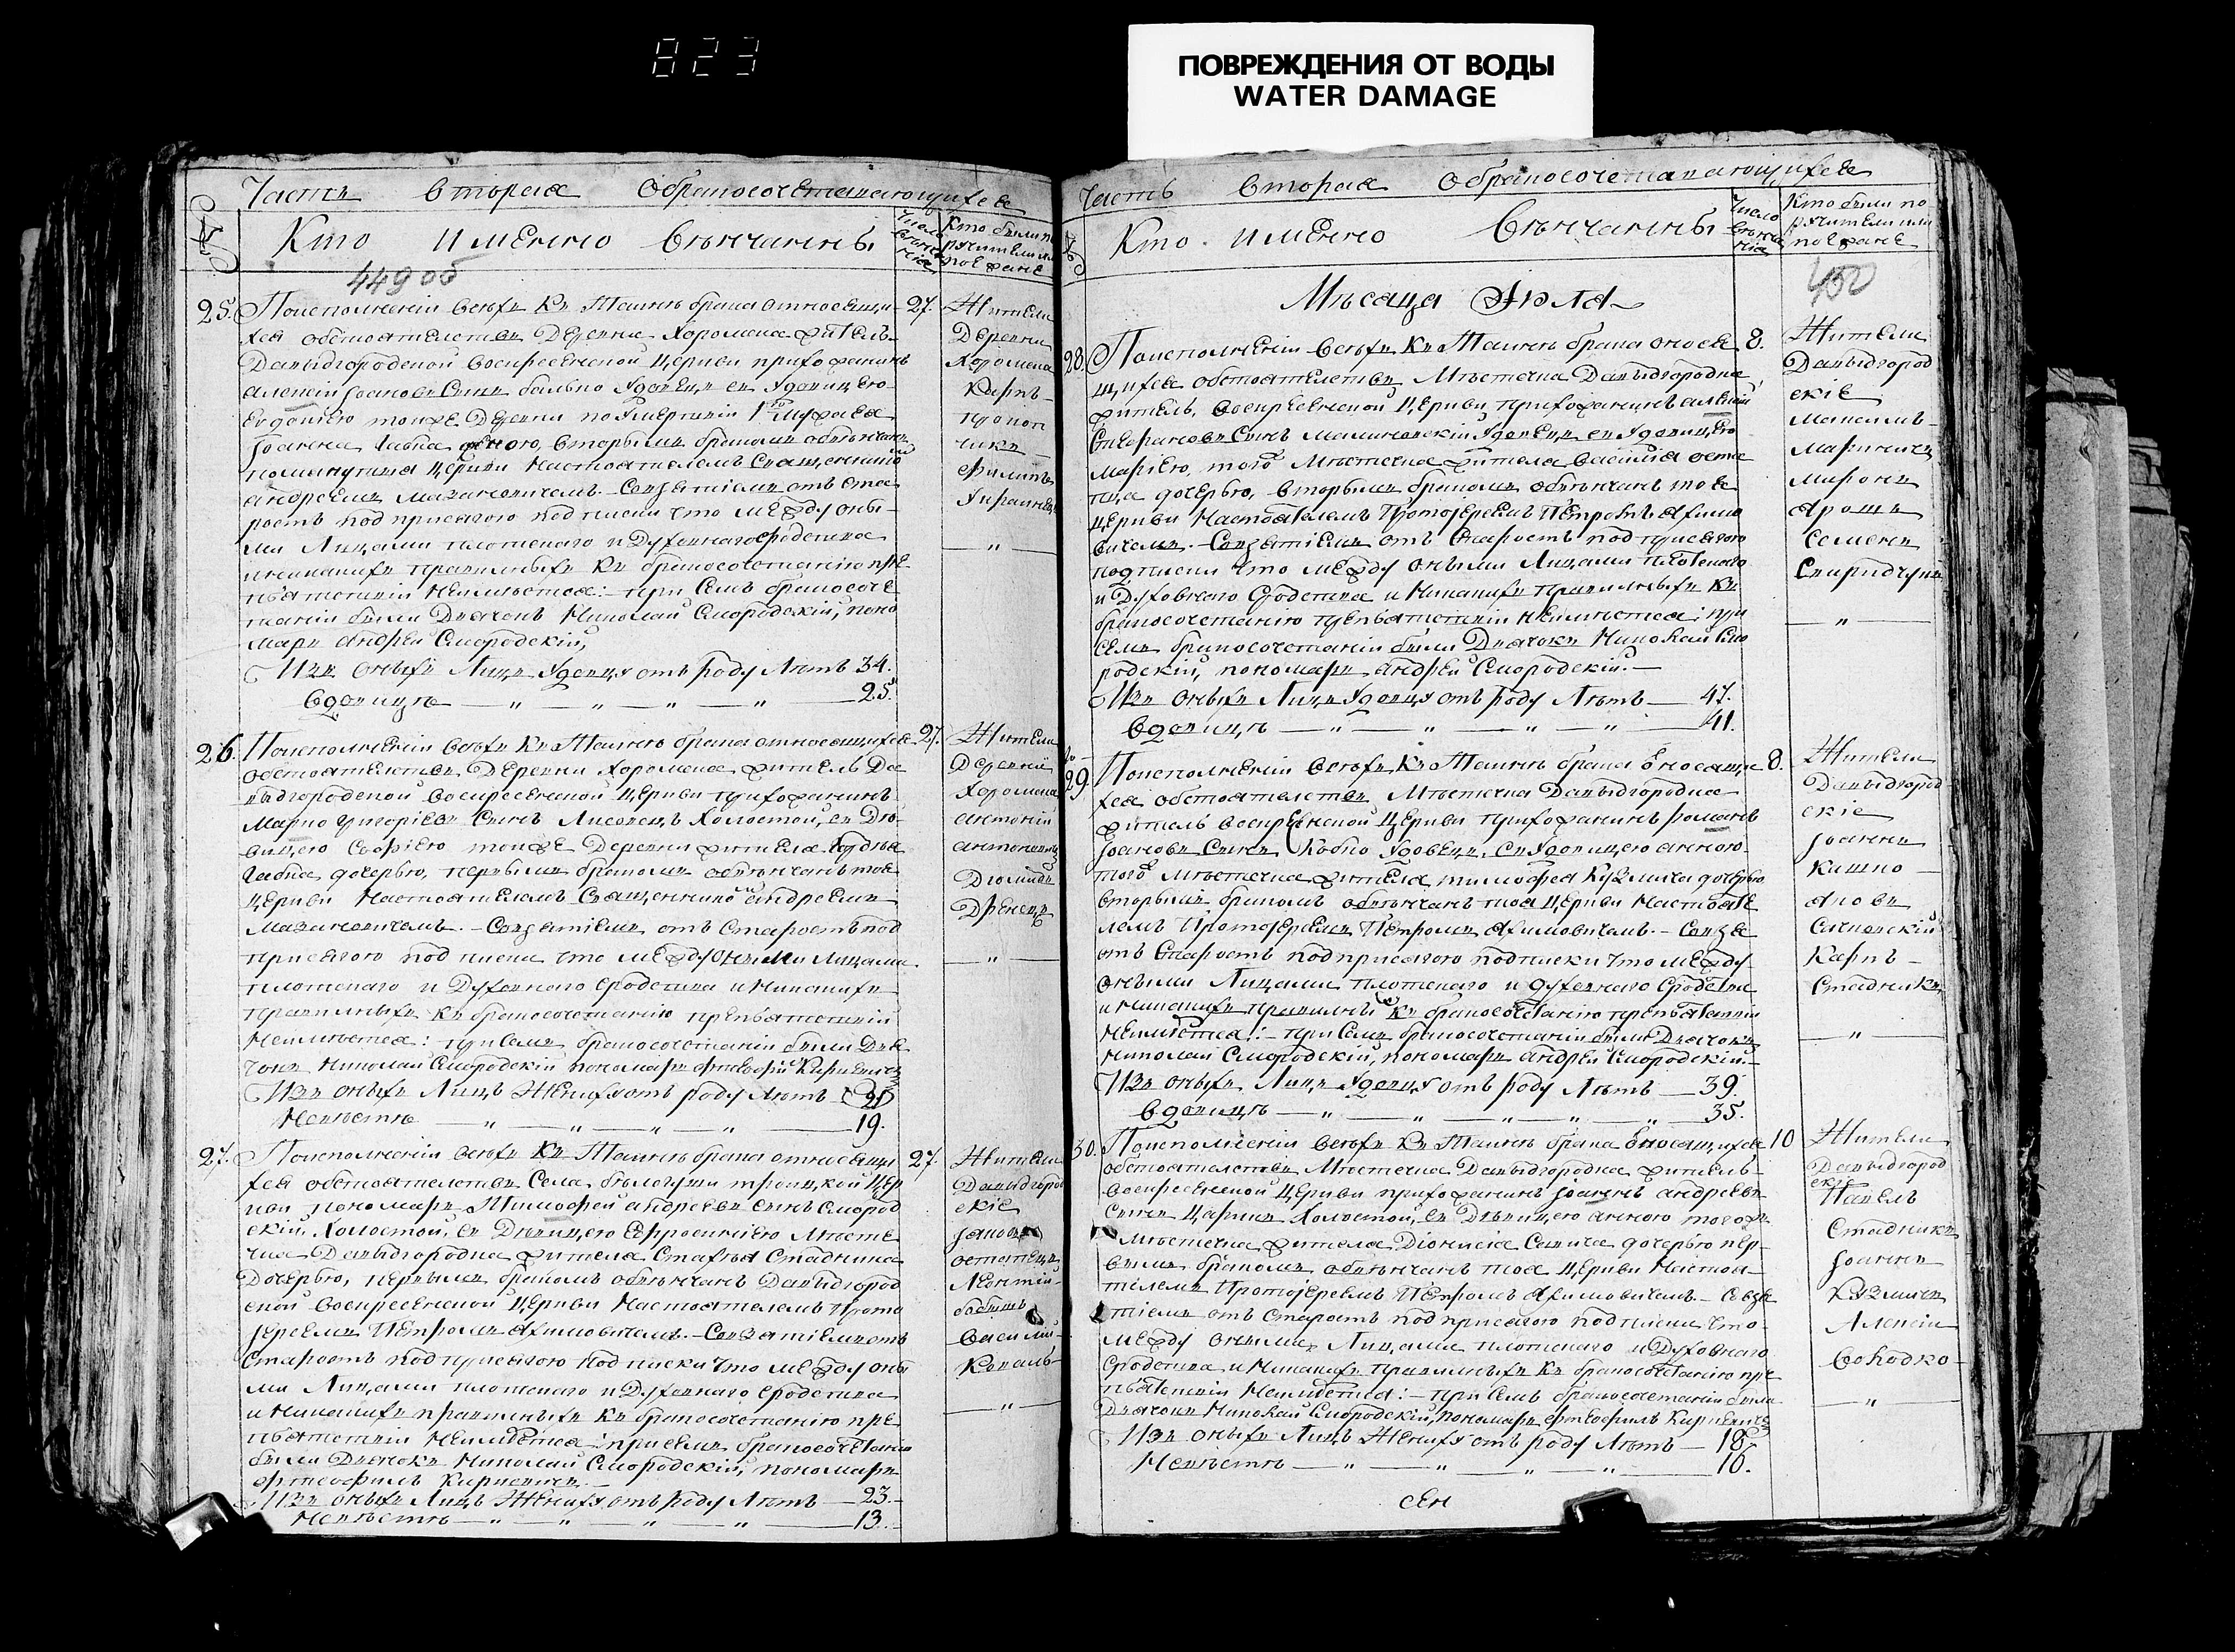 823
ПОВРЕЖДЕНИЯ ОТ ВОДЫ
WATER DAMAGE
Часть вторая о бракосочетавающихся
Кто именно венчанны
449 об
25. По исполненіи всѣхъ къ Таинству брака относящи
хся обстоятельствъ Деревни Хоромска житель
Давыдгородской воскресенской Церкви прихожанинъ
Алексій Іоановъ Сынъ вдовецъ съ вдовицею
Евдокіею тоіже Деревни по умершемъ
вторымъ бракомъ обвѣнчанъ
помянутыя Церкви Настоятелемъ Священникомъ
Андреемъ Мазановичемъ. Со взятіемъ отъ Ста
ростъ под присягою подписки что между оны
ми Лицами плотскаго и Духовнаго сродства
и никакихъ правильныхъ къ бракосочетанію пре
пятствій неимѣется: при Семъ бракосоче
таніи были Дьячокъ Николай Смородскій, поно
марь Андрей Смородскій,
Изъ оныхъ Лицъ Вдовцу отъ роду Лѣтъ 34.
Вдовицѣ 25.
27. Жители
Деревни
Хоромска
Карпъ
Филипъ
26. По исполненіи всѣхъ къ Таинству брака относящихся
обстоятельствъ Деревни Хоромска житель Да
выдгородской воскресенской Церкви прихожанинъ
Марко Григоріевъ Сынъ Лисовецъ Холостой, съ Дѣ
вицею Софіею тоіже Деревни жителя
дочерью, первымъ бракомъ обвѣнчанъ тоя
Церкви Настоятелемъ Священникомъ Андреемъ
Мазановичемъ. Со взятіемъ отъ Старостъ под
присягою подписки что между оными Лицами
плотскаго и Духовнаго сродства и никакихъ
правильныхъ къ бракосочетанію препятствій
неимѣется: при Семъ бракосочетаніи были Дья
чокъ Николай Смородскій пономарь
Изъ оныхъ Лицъ Жениху отъ роду Лѣтъ 21
Невѣстѣ 19.
27. Жители
Деревни
Хоромска
Антоній
27. По исполненіи всѣхъ къ Таинству брака относящи
хся обстоятельствъ Села троицкой Цер
кви пономарь Тимофей Андреевъ Сынъ Смород
скій Холостой, съ Дѣвицею Ефросиніею Мѣсте
чка Давыдгородка жителя Стадника
Дочерью, первымъ бракомъ обвѣнчанъ Давыдгород
ской воскресенской Церкви Настоятелемъ Прото
іереемъ Петромъ Акимовичемъ. Со взятіемъ отъ
Старостъ под присягою подписки что между оны
ми Лицами плотскаго и Духовнаго сродства
и никакихъ правильныхъ къ бракосочетанію пре
пятствій неимѣется: при Семъ бракосочетаніи
были Дьячокъ Николай Смородскій, пономарь
Изъ оныхъ Лицъ Жениху отъ роду Лѣтъ 23.
Невѣстѣ 13.
27. Жители
Давыдгород
скіе
Василій
Коваль
Часть вторая о бракосочетавающихся
Кто именно венчанны
Кто были по
ручители или
поезжане
450
Мѣсяца Іюля
28. По исполненіи всѣхъ къ Таинству брака относя
щихся обстоятельствъ Мѣстечка Давыдгородка
житель, воскресенской Церкви прихожанинъ Алексій
Стефановъ Сынъ вдовецъ съ вдовицею
Маріею, того Мѣстечка жителя Василія
дочерью, вторымъ бракомъ обвѣнчанъ тоя
Церкви Настоятелемъ Протоіереемъ Петромъ Акимо
вичемъ. Со взятіемъ отъ Старостъ под присягою
подписки что между оными Лицами плотскаго
и Духовнаго Сродства и никакихъ правильныхъ къ
бракосочетанію препятствій неимѣется: при
семъ бракосочетаніи были Дьячокъ Николай Смо
родскій, пономарь Андрей Смородскій.
Изъ оныхъ Лицъ Вдовцу отъ роду Лѣтъ 47.
Вдовицѣ 41.
8. Жители
Давыдгород
скіе
Миронъ
Ярошъ
Семенъ
Спиридчукъ
29. По исполненіи всѣхъ къ Таинству брака относящи
хся обстоятельствъ Мѣстечка Давыдгородка
житель воскресенской Церкви прихожанинъ Романъ
Іоановъ Сынъ вдовецъ, съ вдовицею Анною
того Мѣстечка жителя Тимофея Кузмича дочерью
вторымъ бракомъ обвѣнчанъ тоя Церкви Настояте
лемъ Протоіереемъ Петромъ Акимовичемъ. Со взя
отъ Старостъ под присягою подписки что между
оными Лицами плотскаго и духовнаго Сродства
и никакихъ правильныхъ къ бракосочетанію препятствій
неимѣется: при Семъ бракосочетаніи были Дьячокъ
Николай Смородскій, пономарь Андрей Смородскій.
Изъ оныхъ Лицъ Вдовцу отъ роду Лѣтъ 39.
Вдовицѣ 35.
8. Жители
Давыдгород
скіе
Іоаннъ
Кашко
Карпъ
Стадникъ
30. По исполненіи всѣхъ къ Таинству брака относящихся
обстоятельствъ Мѣстечка Давыдгородка житель
воскресенской Церкви прихожанинъ Іоаннъ Андреевъ
Сынъ Царикъ Холостой, съ Дѣвицею Анною того ж
Мѣстечка жителя Діонисія Савича дочерью пер
вымъ бракомъ обвѣнчанъ тоя Церкви Настоя
телемъ Протоіереемъ Петромъ Акимовичемъ. Со взя
тіемъ отъ Старостъ под присягою подписки что
между оными Лицами плотскаго и Духовнаго
Сродства и никакихъ правильныхъ къ бракосочетанію пре
пятствій неимѣется: при Семъ бракосочетаніи были
Дьячокъ Николай Смородскій, пономарь
Изъ оныхъ Лицъ Жениху отъ роду Лѣтъ 18.
Невѣстѣ 16.
10 Жители
Давыдгород
скіе
Павелъ
Стадникъ
Іоаннъ
Кузмичъ
Алексій
Володко
сен